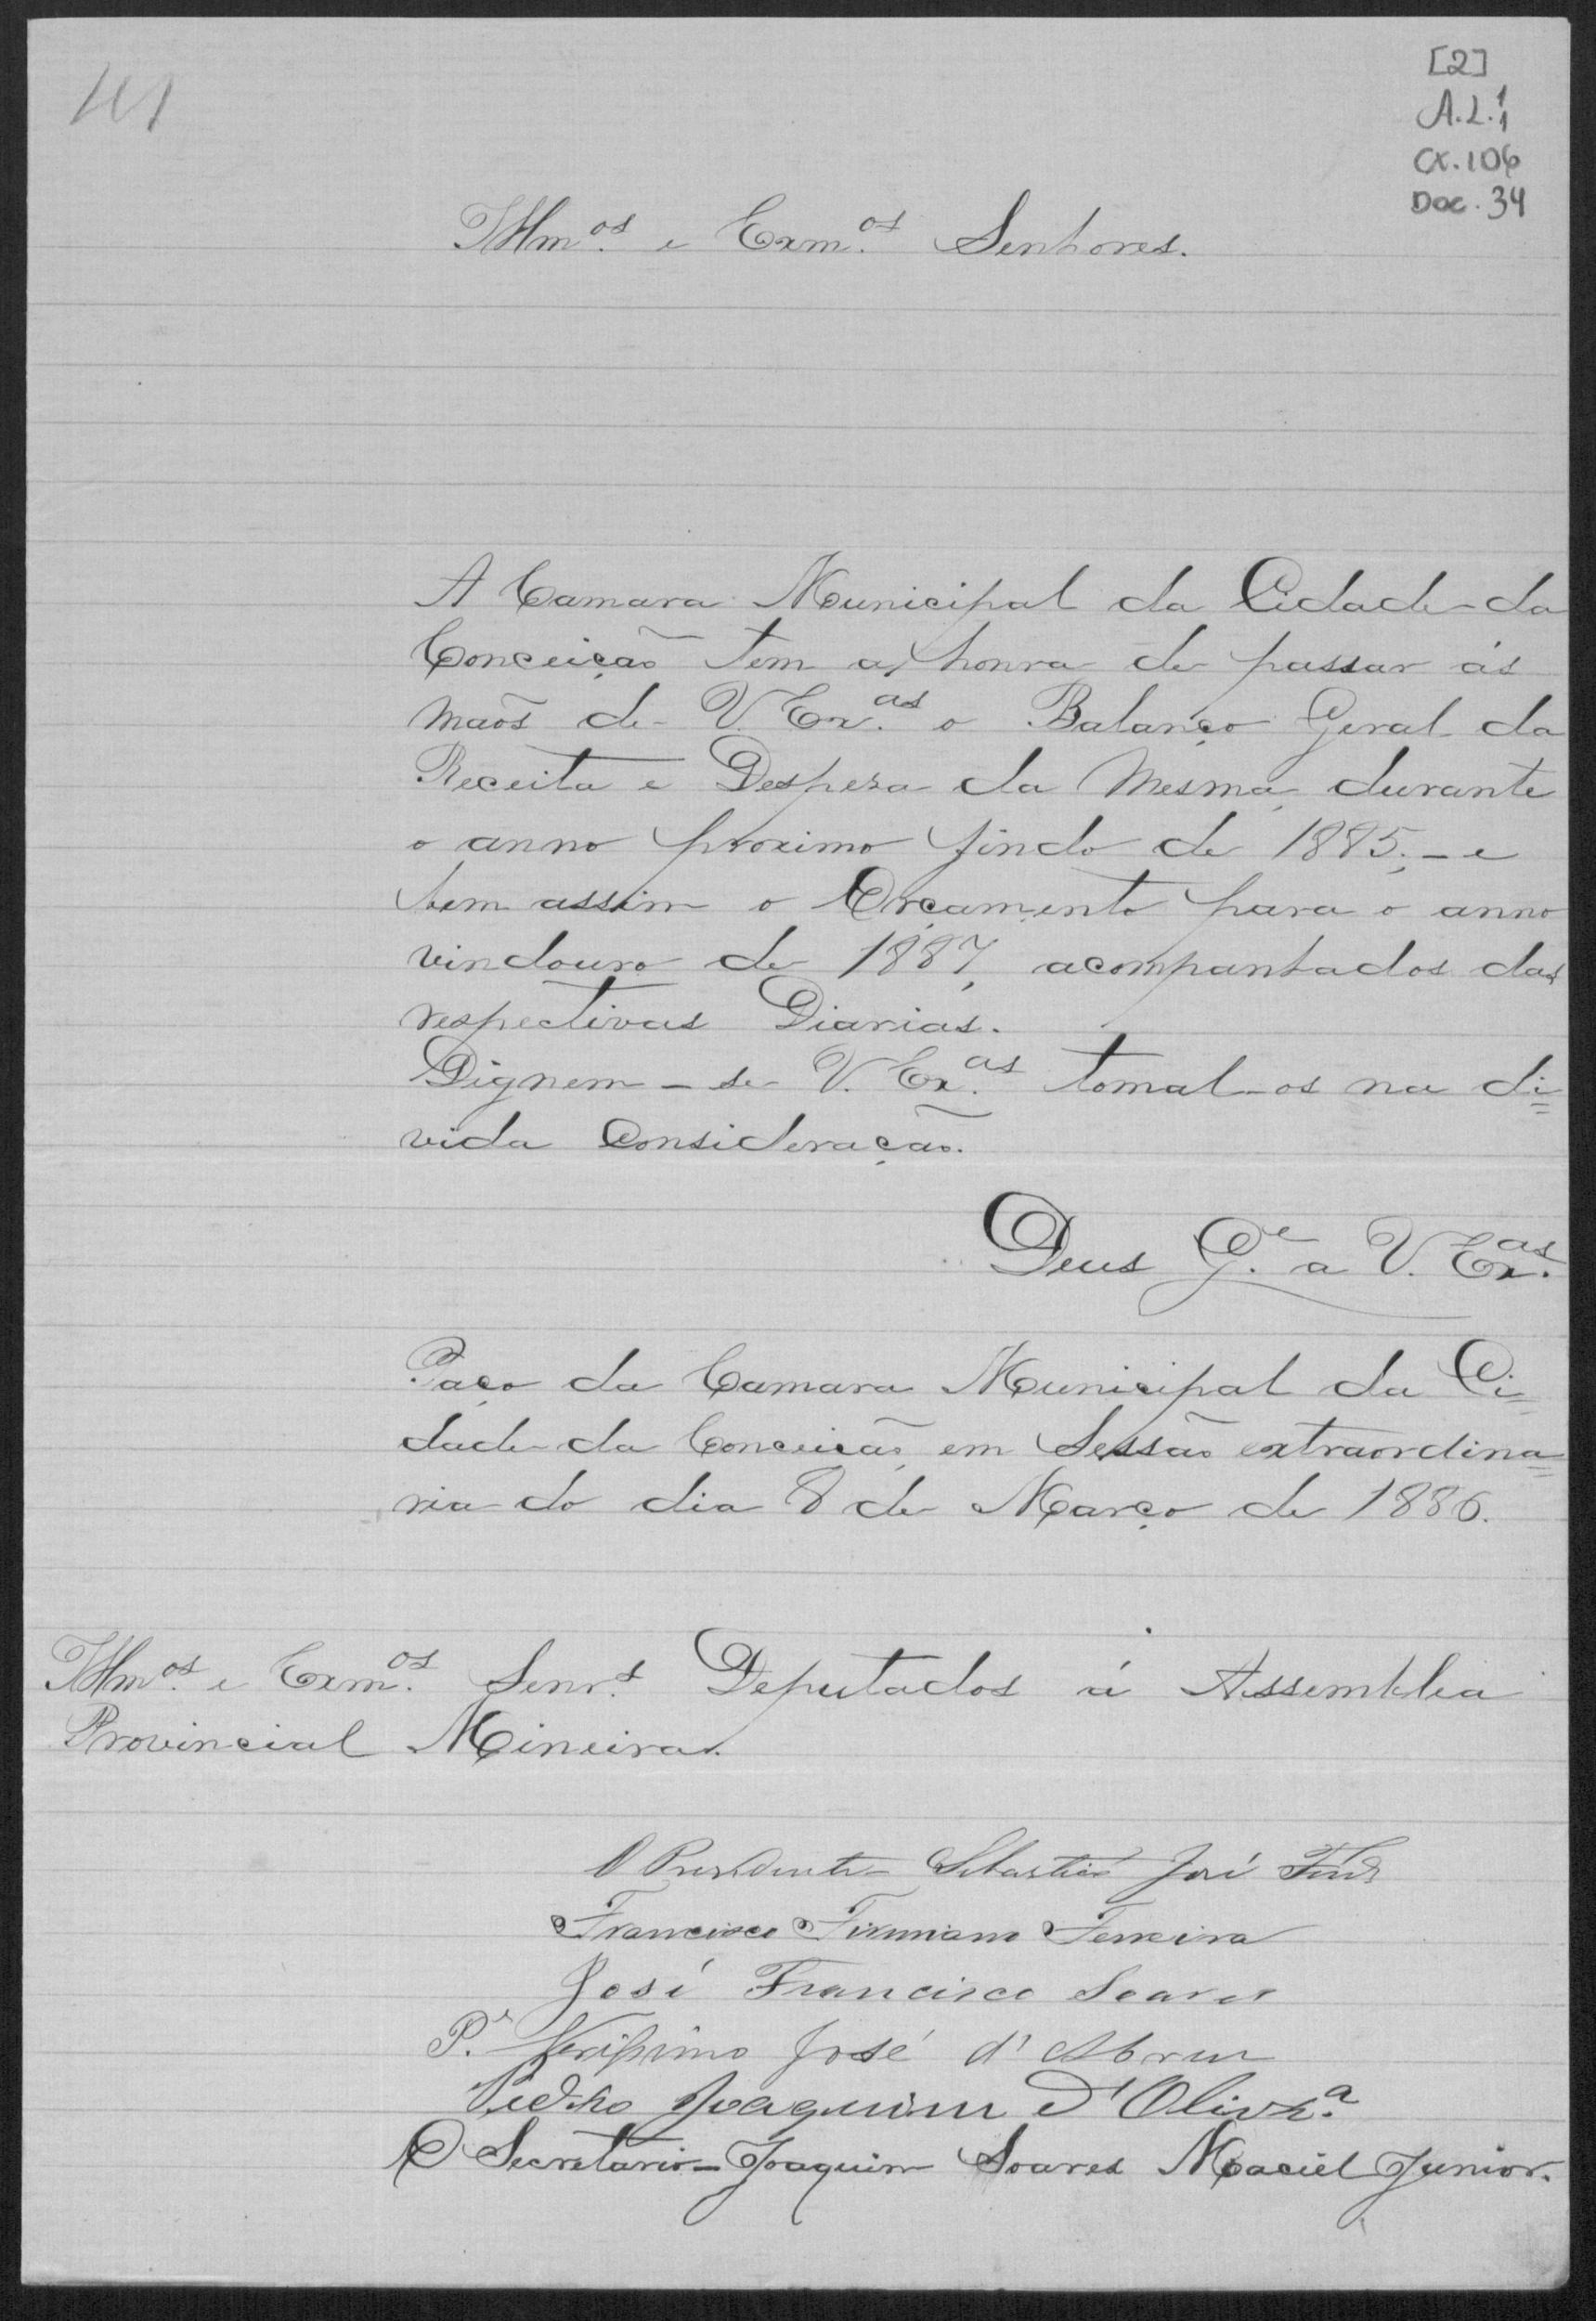 [2]
A.L.1/1
Cx.106
Doc. 34
Illm.os e Exm.os Senhores.
A Camara Municipal da Cidade da
Conceição tem a honra de passar ás
maõs de V. Ex.as o Balanço Geral da
Receita e Despeza da mesma, durante
o anno proximo findo de 1885; - e
bem assim o Orçamento para o anno
vindouro de 1887, acompanhados das
respectivas Diarias.
Dignem-se V. Ex.as tomal-os na di=
vida consideração.
Deus G.e a V. Ex.as
Paço da Camara Municipal da Ci=
dade da Conceição, em Sessão extraordina=
ria do dia 8 de Março de 1886.
Illm.os e Exm.os Senr.s Deputados á Assemblea
Provincial Mineira.
O Presidente Sebastião José
Francisco Firmiano Ferreira
José Francisco Soares
P.e Verissimo José d'Abreu
Pedro Joaquim d'Olivr.a
O Secretario - Joaquim Soares Maciel Junior.